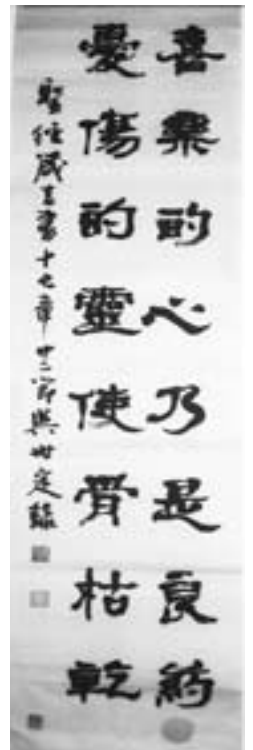 喜樂的心乃是良葯
憂傷的靈使骨枯乾
聖經箴言書十七章廿二節與世定錄